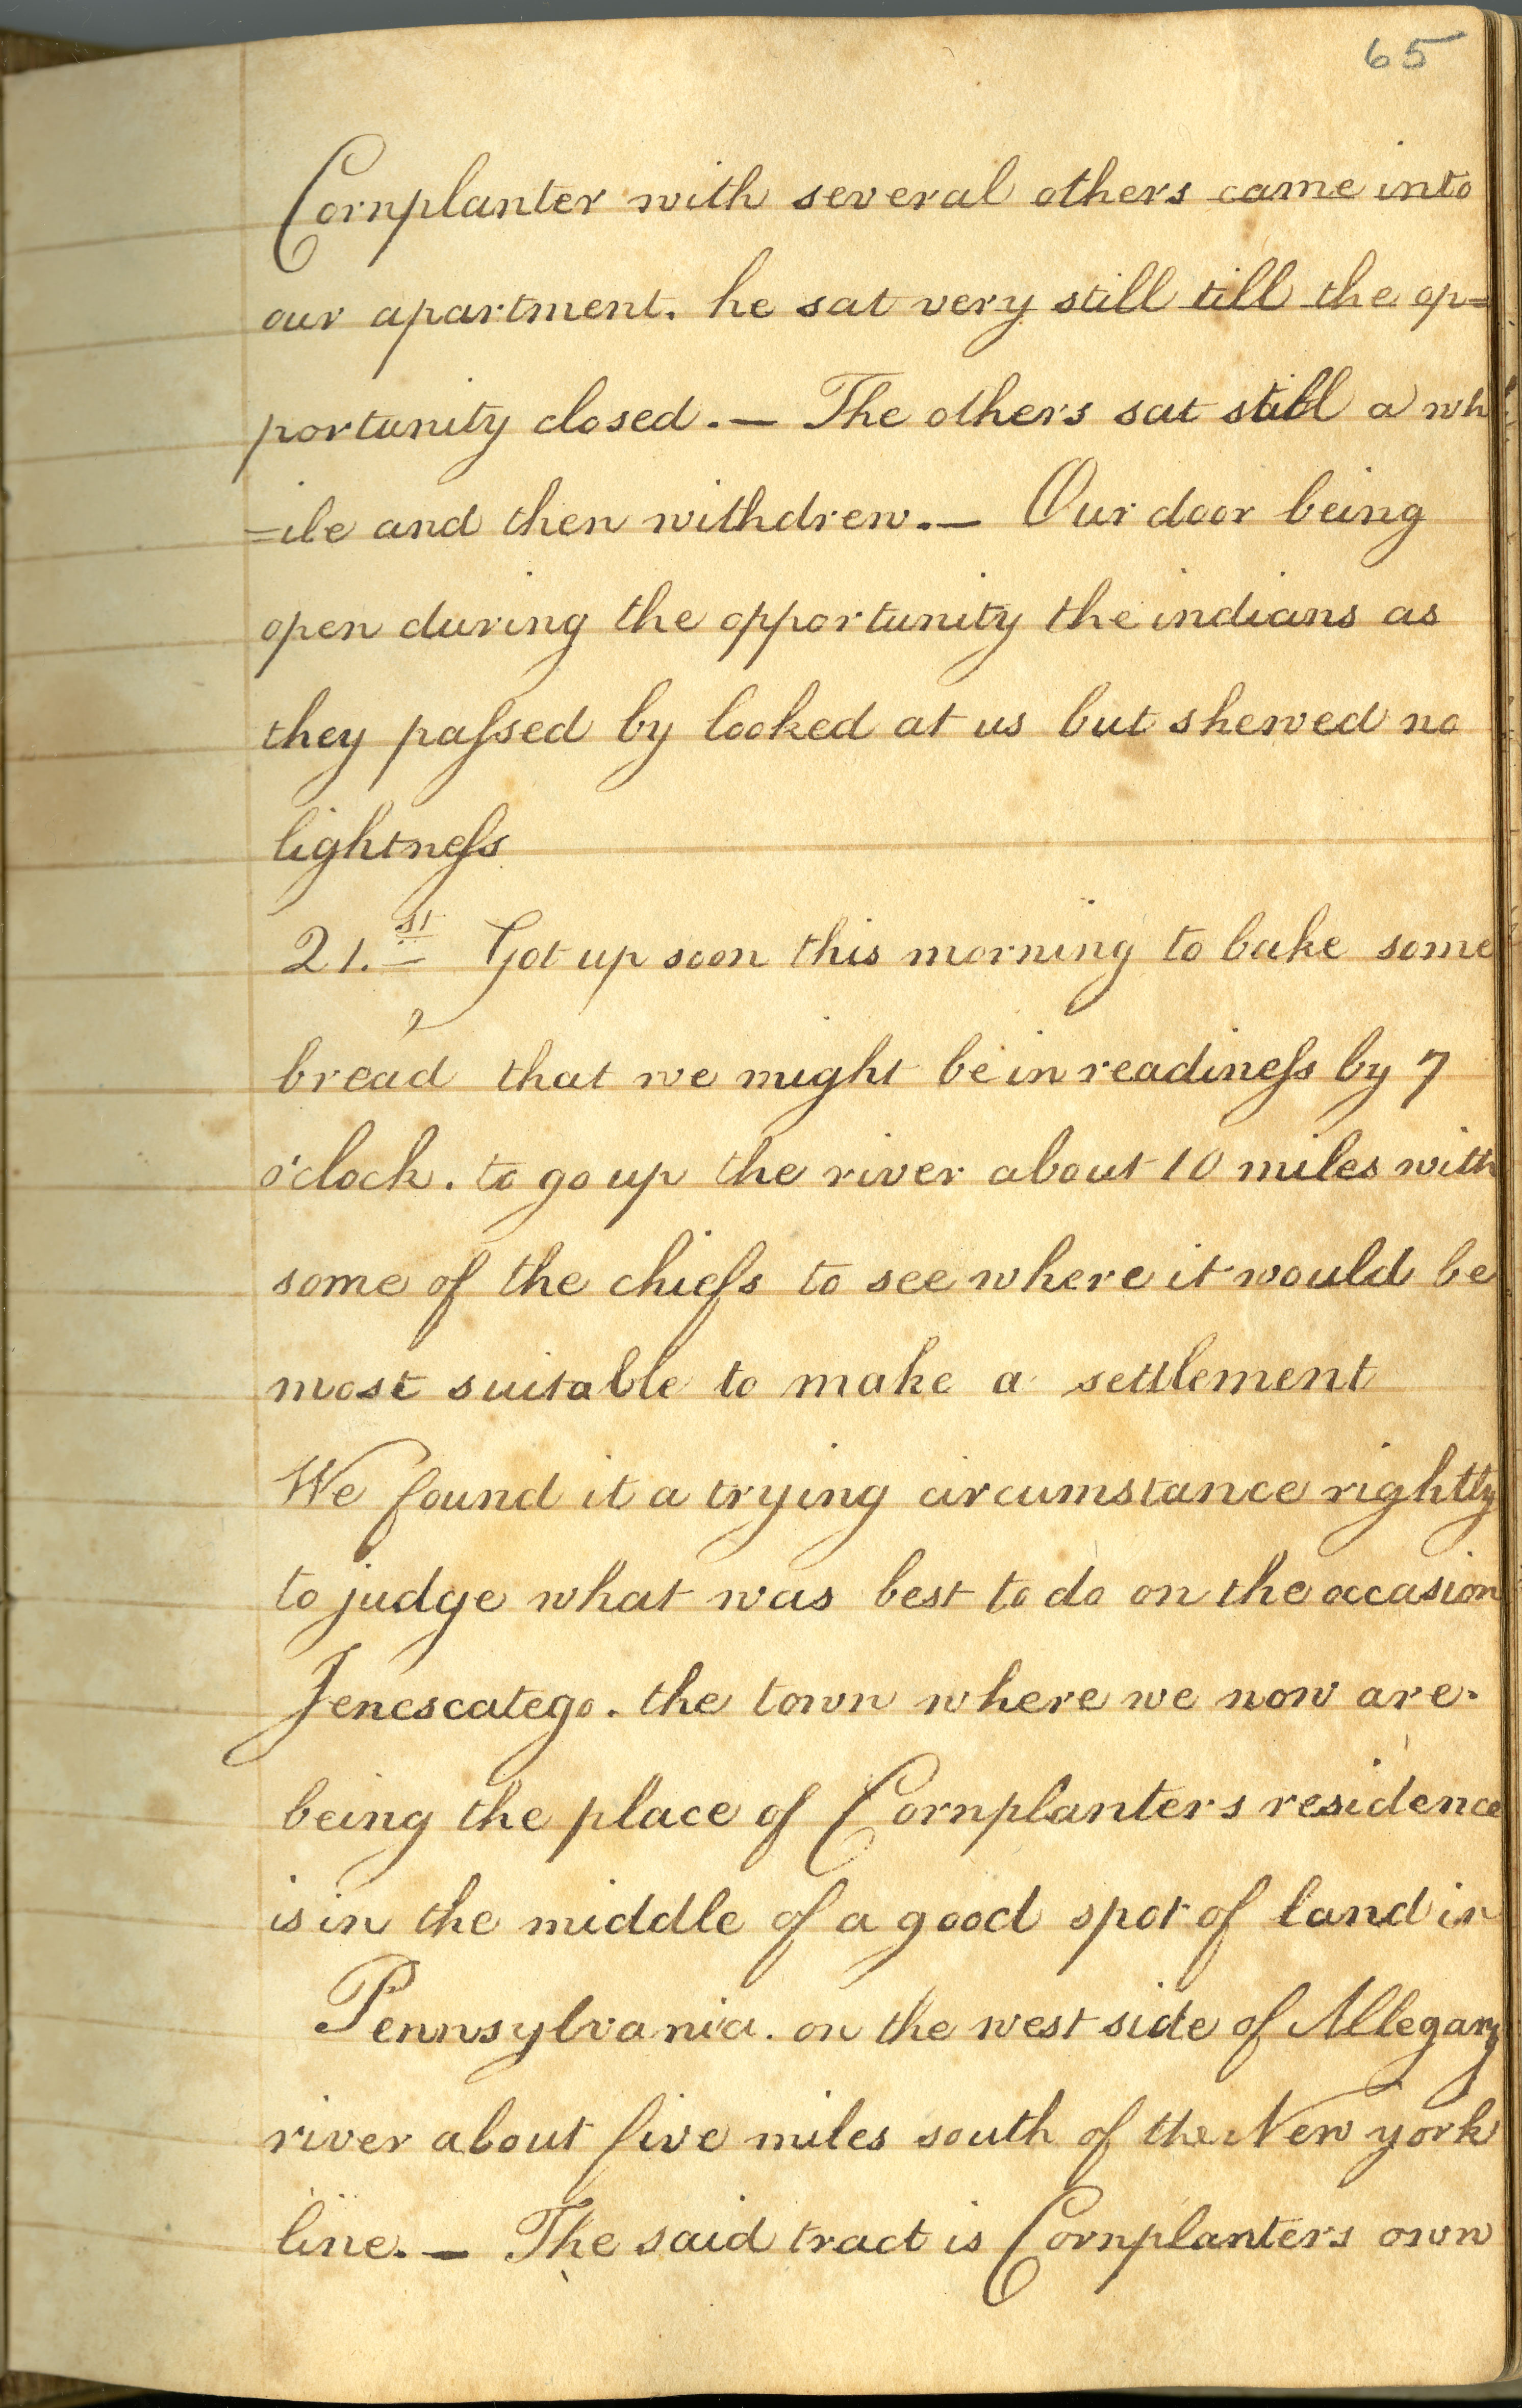 65
Cornplanter with several others came into
our apartment. he sat very still till the op=
portunity closed. — The others sat still a wh
=ile and then withdrew. — Our door being
open during the opportunity the indians as
they paſsed by looked at us but shewed no
lightneſs
21.st Got up soon this morning to bake some
bread that we might be in readineſs by 7
o'clock. to go up the river about 10 miles with
some of the chiefs to see where it would be
most suitable to make a settlement
We found it a trying circumstance rightly
to judge what was best to do on the occasion
Jenescatego. the town where we now are.
being the place of Cornplanters residence
is in the middle of a good spot of land in
Pennsylvania. on the west side of Allegany
river about five miles south of the New york
line. — The said tract is Cornplanters own